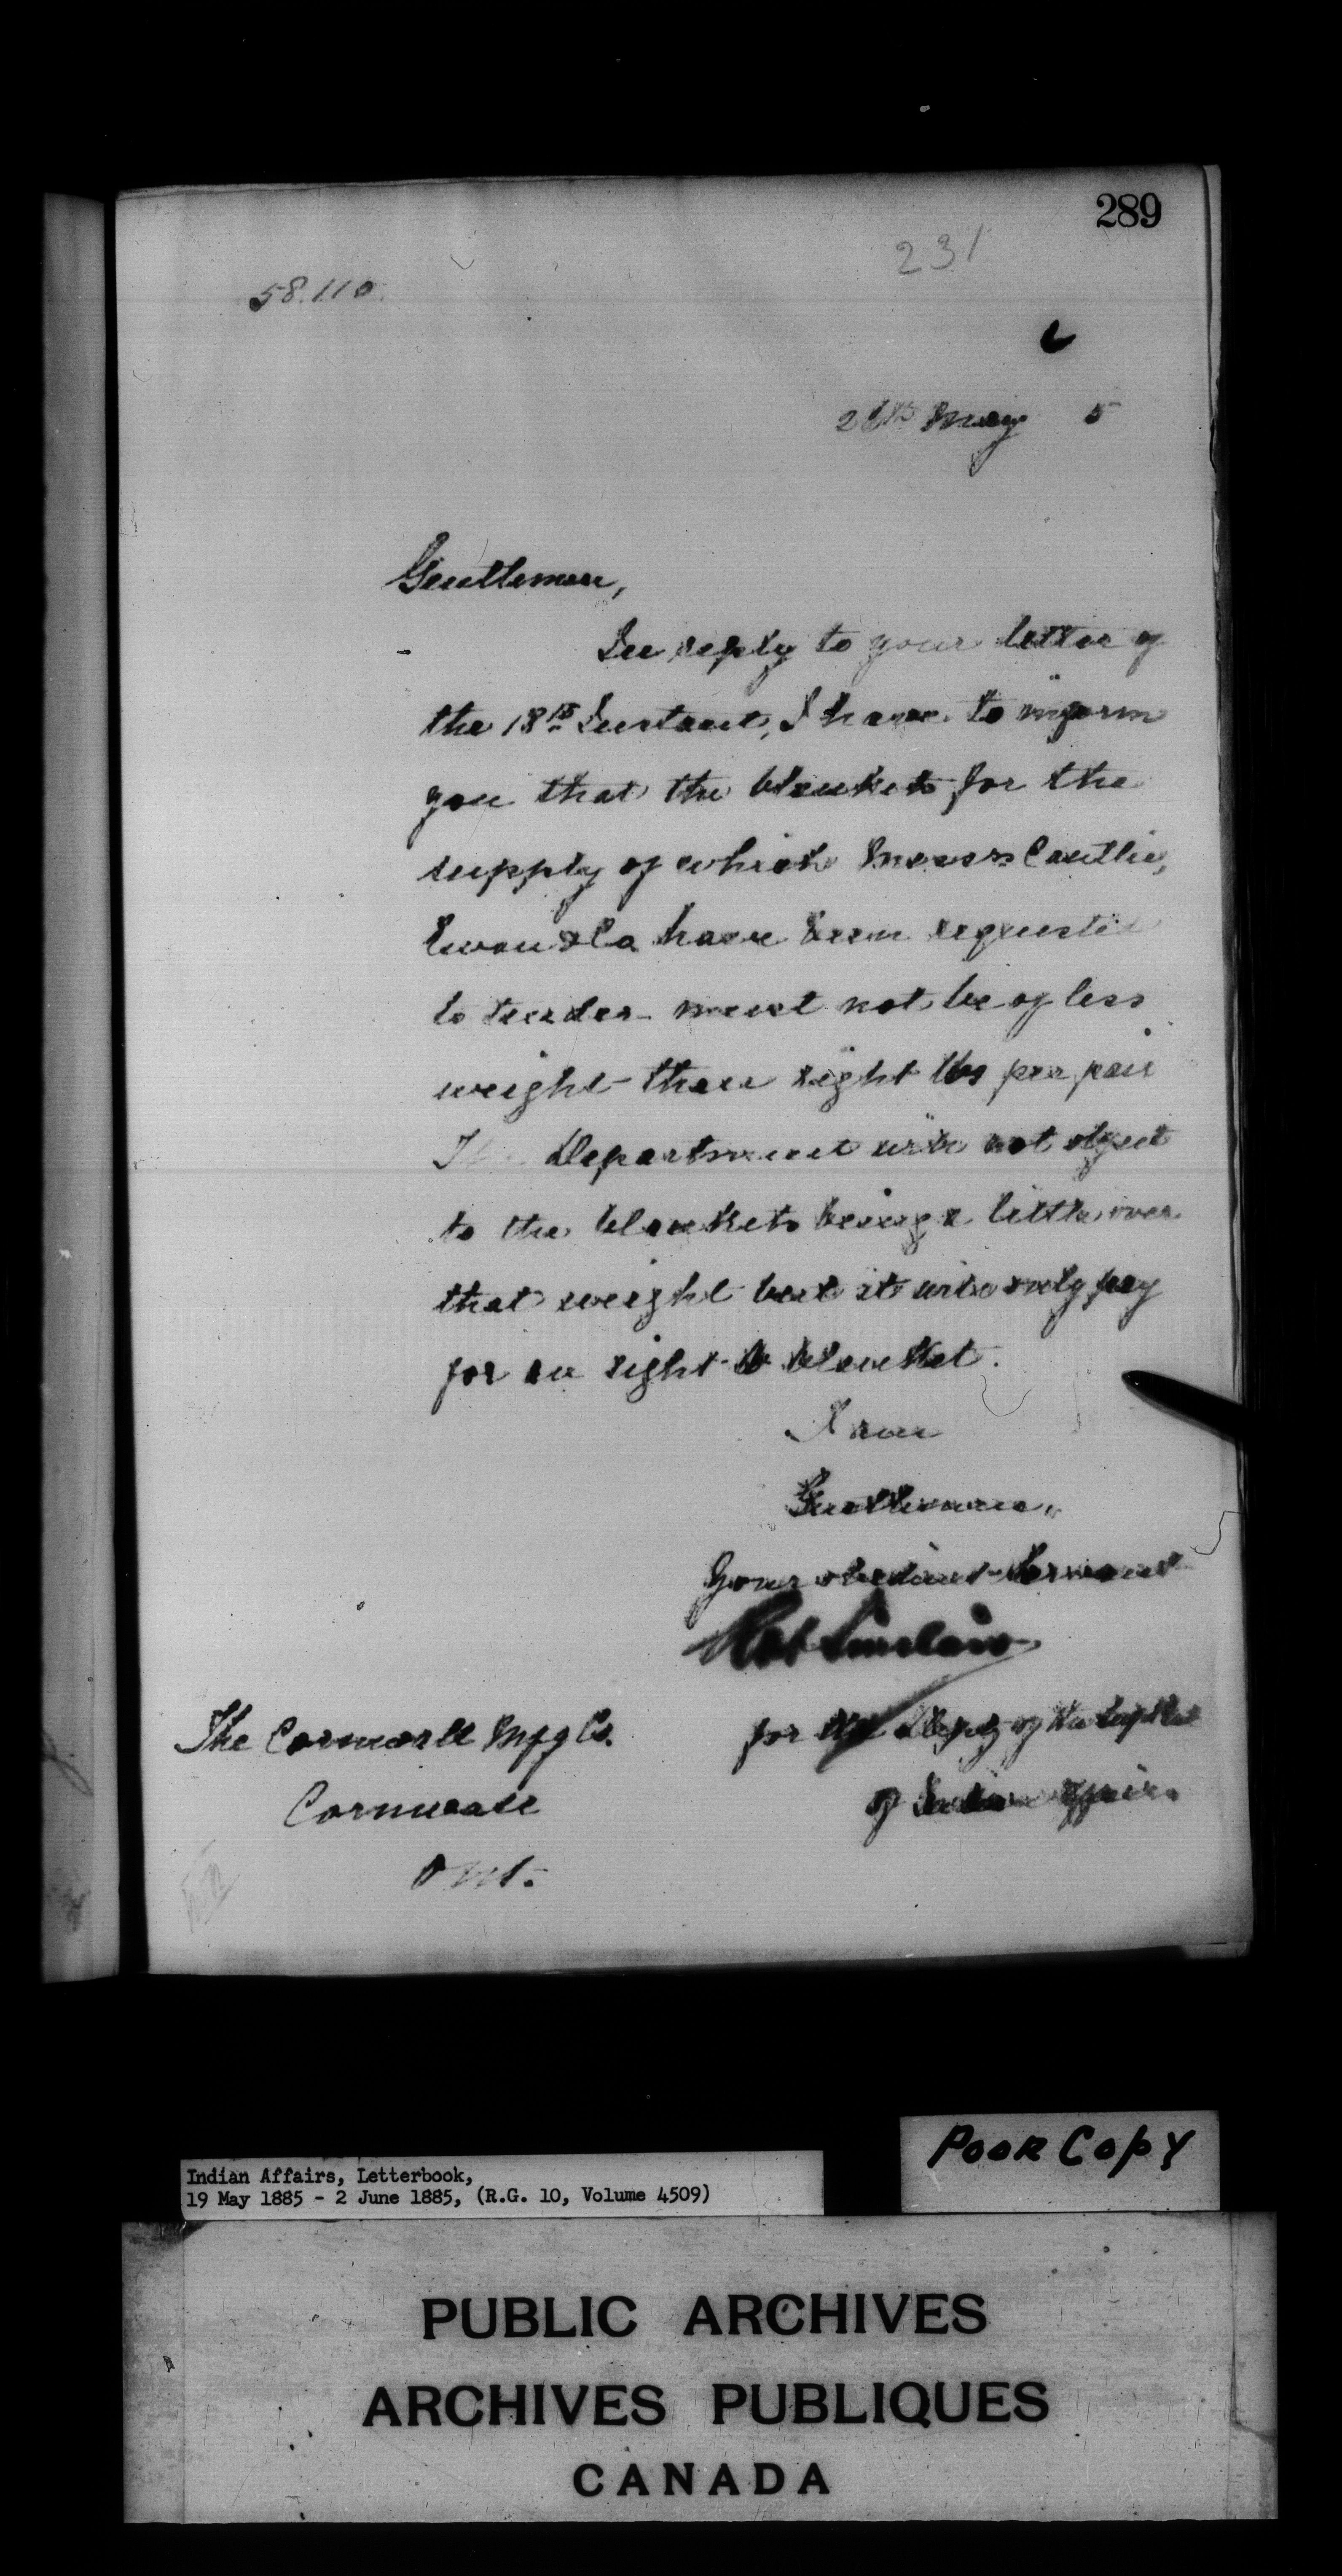 289
231
58.110.
26th May 5
Gentlemen,
In reply to your letter of
the 18th Instant, I have to inform
you that the blankets for the
supply of which Messrs Cantlie,
Ewan & Co have been requested
to tender must not be of less
weight than eight lbs per pair
The Department will not object
to the blankets being a little over
that weight but it will only pay
for an eight lb blanket.
I am
Gentlemen,
Your obedient Servant
Rob Sinclair
for the Deputy of the Supt Genl
of Indian Affairs
The Cornwall Mfg Co.
Cornwall
Ont.
POOR COPY
Indian Affairs, Letterbook,
19 May 1885 - 2 June 1885, (R.G. 10, Volume 4509)
PUBLIC ARCHIVES
ARCHIVES PUBLIQUES
CANADA